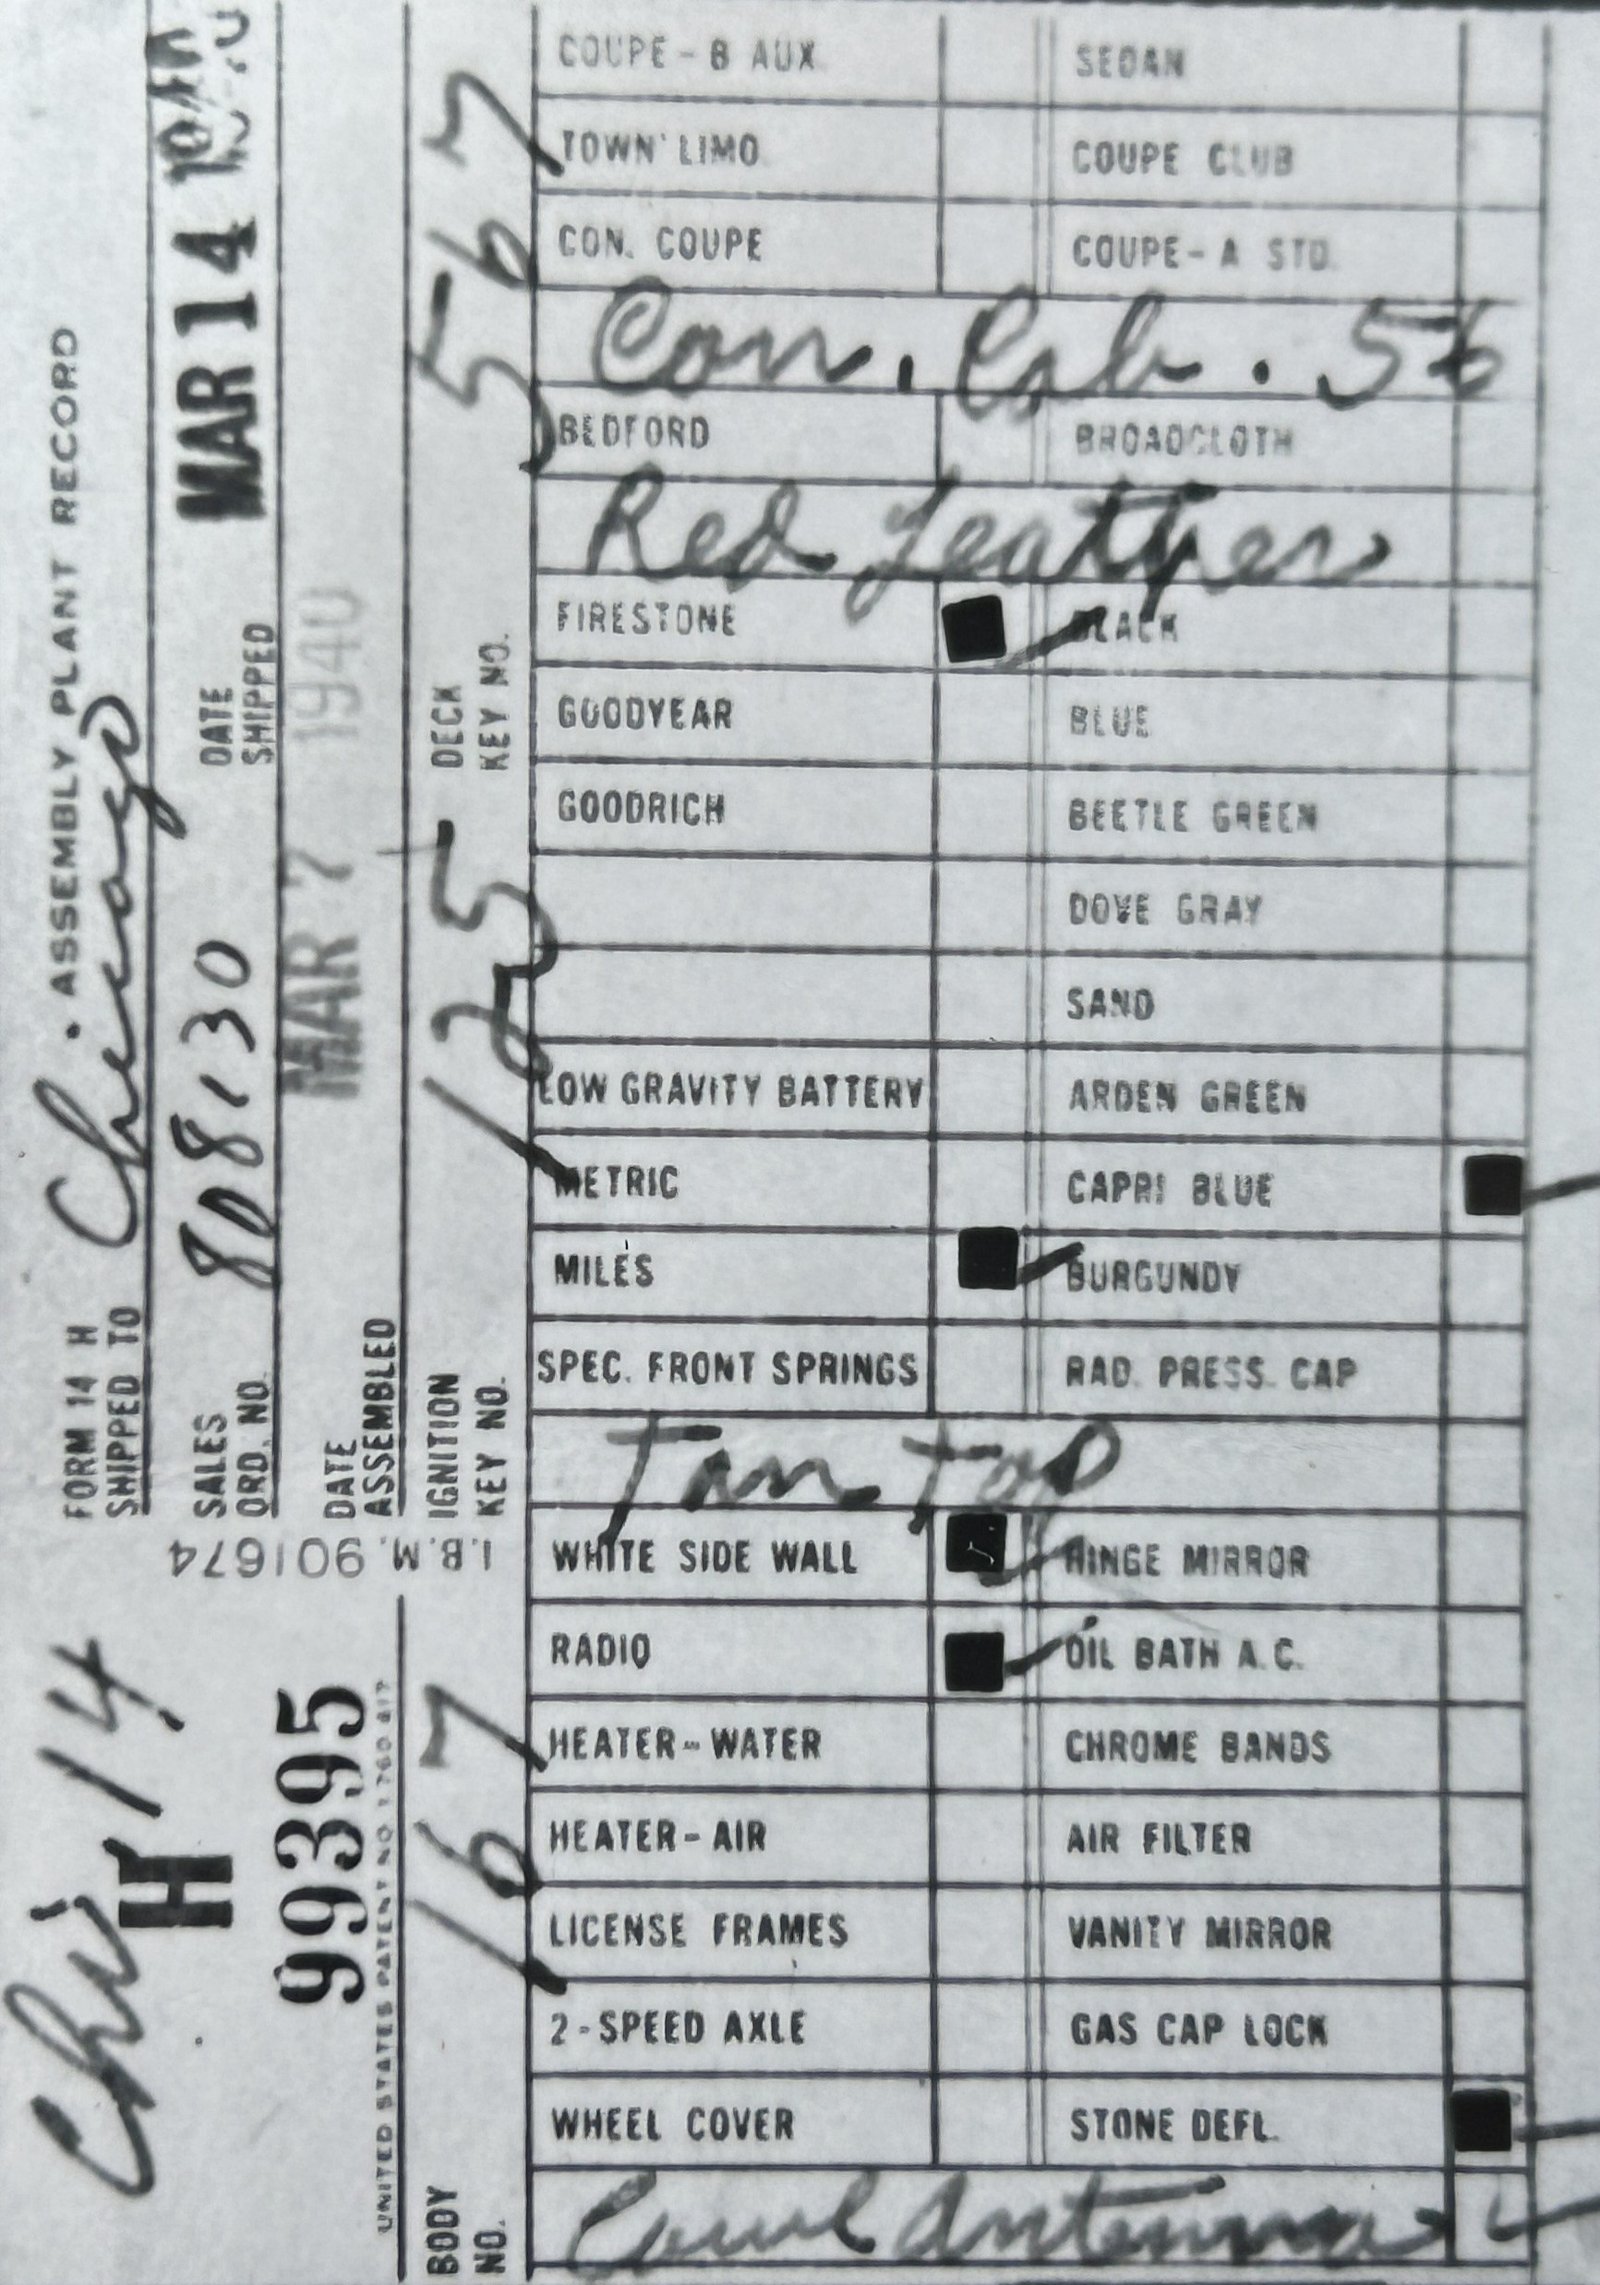 FORM 14 H . ASSEMBLY PLANT RECORD
SHIPPED TO Chicago
SALES ORD. NO. 808130
DATE SHIPPED MAR 14
DATE ASSEMBLED MAR 7 1940
IGNITION KEY NO. 125
DECK KEY NO. 567
I.B.M. 901674
Chi 14
H
993395
UNITED STATES PATENT NO
BODY NO. 167
COUPE - B AUX. SEDAN
TOWN LIMO COUPE CLUB
CON. COUPE COUPE - A STD.
Con. Cab. 56
BEDFORD BROADCLOTH
Red Leather
FIRESTONE BLACK
GOODYEAR BLUE
GOODRICH BEETLE GREEN
DOVE GRAY
SAND
LOW GRAVITY BATTERY ARDEN GREEN
METRIC CAPRI BLUE
MILES BURGUNDY
SPEC. FRONT SPRINGS RAD. PRESS. CAP
Tan Top
WHITE SIDE WALL HINGE MIRROR
RADIO OIL BATH A.C.
HEATER - WATER CHROME BANDS
HEATER - AIR AIR FILTER
LICENSE FRAMES VANITY MIRROR
2 - SPEED AXLE GAS CAP LOCK
WHEEL COVER STONE DEFL.
Cowl Antenna